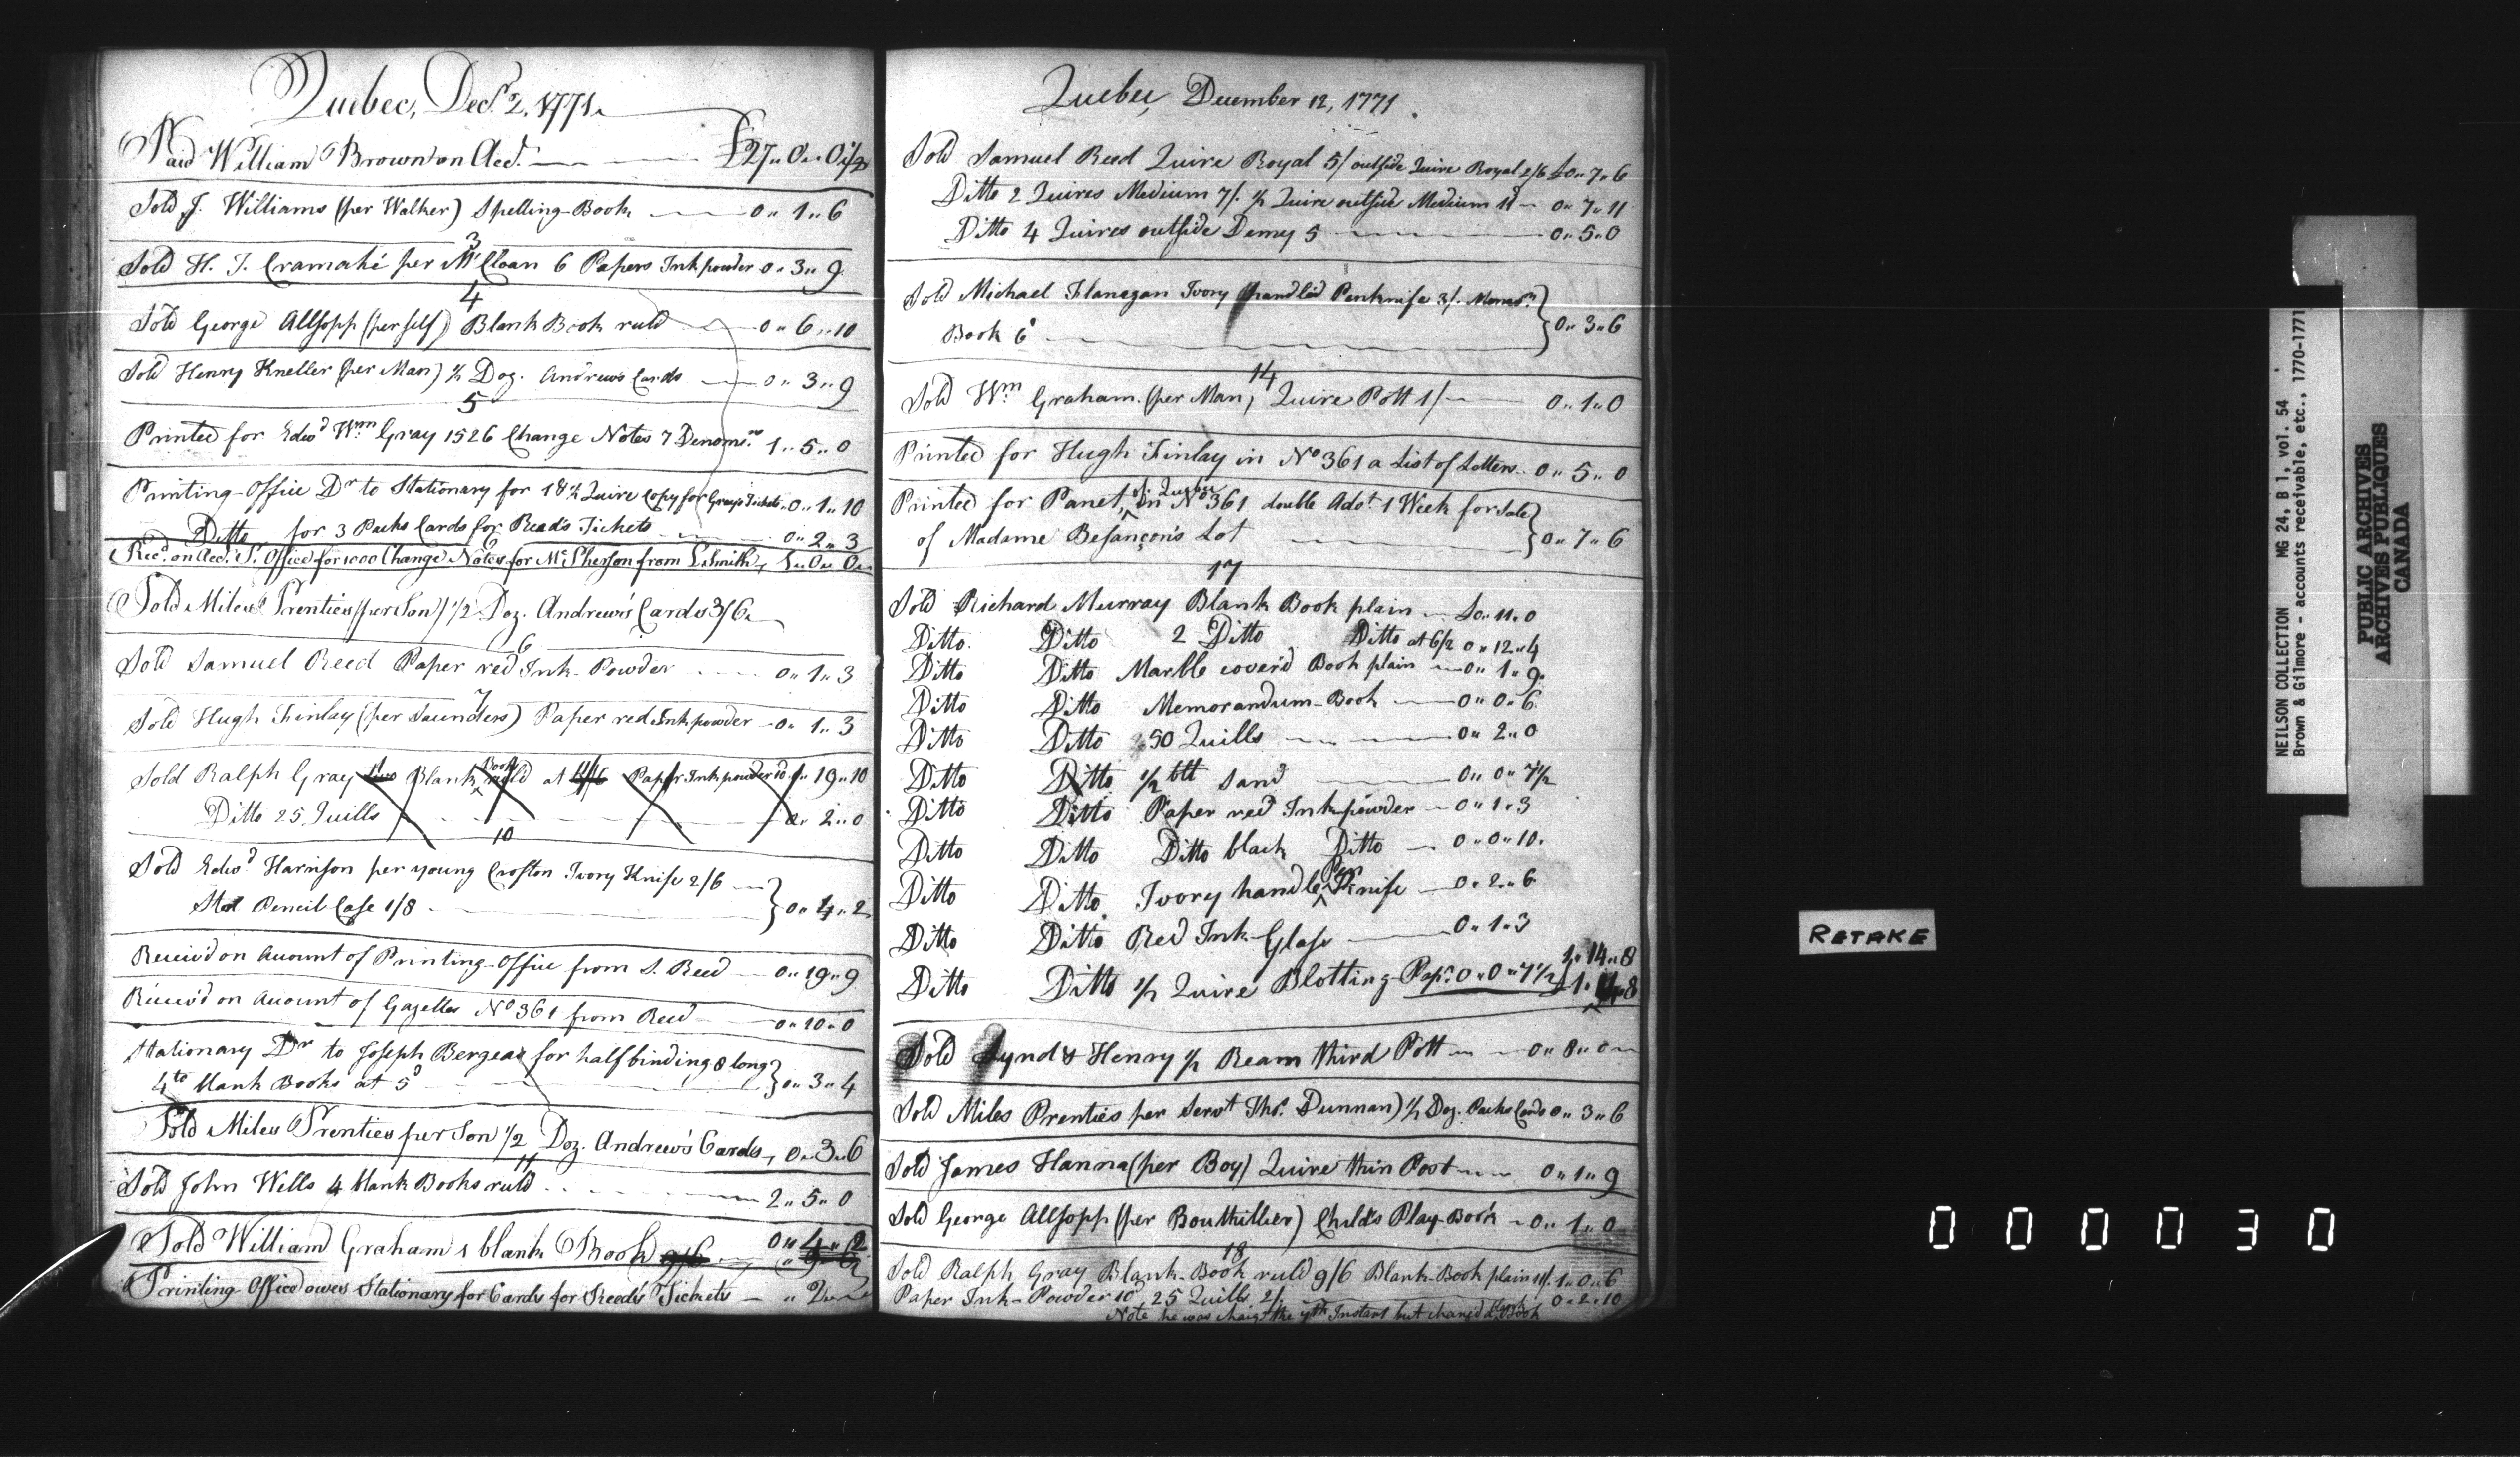 Quebec, Decr. 2, 1771.
Paid William Brown on Acct. £27,, 0,, 0 1/2
Sold J. Williams (per Walker) Spelling-Book 0,, 1,, 6
3
Sold H. T. Cramahé per McCloan 6 Papers Ink powder 0,, 3,, 9
4
Sold George Allsopp (per self) Blank Book ruld 0,, 6,, 10
Sold Henry Kneller (per Man) 1/2 Doz. Andrew's Cards 0,, 3,, 9
5
Printed for Edwd Wm. Gray 1526 Change Notes 7 Denomns. 1,, 5,, 0
Printing-Office Dr to Stationary for 18 1/2 Quire Copy for Gray's Tickets 0,, 1,, 10
Ditto for 3 Packs Cards for Read's Tickets 0,, 2,, 3
Recd. on Acct. P. Office for 1000 Change Notes for McPherson from Smith, 1,, 0,, 0
Sold Miles Prenties (per Son) 1/2 Doz. Andrew's Cards 3/6
6
Sold Samuel Reed Paper red Ink-Powder 0,, 1,, 3
7
Sold Hugh Finlay (per Saunders) Paper red Ink powder 0,, 1,, 3
Sold Ralph Gray Blank Book ruld at Paper Ink powder 10d 19,, 10
Ditto 25 Quills 0,, 2,, 0
10
Sold Edwd Harrison per young Crofton Ivory Knife 2/6
Steel Pencil Case 1/8 } 0,, 4,, 2
Receiv'd on Account of Printing-Office from S. Reed 0,, 19,, 9
Receiv'd on Account of Gazettes No 361 from Reed 0,, 10,, 0
Stationary Dr to Joseph Bergeas for half binding 8 long
4to blank Books at 5d } 0,, 3,, 4
Sold Miles Prenties per Son 1/2 Doz. Andrew's Cards, 0,, 3,, 6
11
Sold John Wells 4 blank Books ruld 2,, 5,, 0
Sold William Graham 1 blank Book 9/6 0,, 4,, 2
,, 9,, 6
Printing Office owes Stationary for Cards for Reed's Tickets ,, 2
Quebec, December 12, 1771
Sold Samuel Reed Quire Royal 5/ outside Quire Royal 2/6 £0,, 7,, 6
Ditto 2 Quires Medium 7/. 1/2 Quire outside Medium 11 0,, 7,, 11
Ditto 4 Quires outside Demy 5 0,, 5,, 0
Sold Michael Flanagan Ivory handled Penknife 3/. Memorm.
Book 6d } 0,, 3,, 6
14
Sold Wm. Graham (per Man) Quire Pott 1/ 0,, 1,, 0
Printed for Hugh Finlay in No 361 a List of Letters 0,, 5,, 0
Printed for Panet, of Quebec in No 361 double Advt. 1 Week for Sale
of Madame Besançon's Lot } 0,, 7,, 6
17
Sold Richard Murray Blank Book plain £0,, 11,, 0
Ditto Ditto 2 Ditto Ditto at 6/2 0,, 12,, 4
Ditto Ditto Marble cover'd Book plain 0,, 1,, 9
Ditto Ditto Memorandum-Book 0,, 0,, 6
Ditto Ditto 50 Quills 0,, 2,, 0
Ditto Ditto 1/2 btt Sand 0,, 0,, 7 1/2
Ditto Ditto Paper red Ink powder 0,, 1,, 3
Ditto Ditto Ditto black Ditto 0,, 0,, 10
Ditto Ditto Ivory handle Pen Knife 0,, 2,, 6
Ditto Ditto Red Ink-Glass 0,, 1,, 3
1,, 14,, 8
Ditto Ditto 1/2 Quire Blotting-Papr. 0,, 0,, 7 1/2 } 1,, 14,, 8
Sold Lynd & Henry 1/2 Ream third Pott 0,, 8,, 0
Sold Miles Prenties per Servt Thos. Dunnan) 1/2 Doz. Packs Cards 0,, 3,, 6
Sold James Hanna (per Boy) Quire thin Post 0,, 1,, 9
Sold George Allsopp (per Bouthillier) Child's Play-Book 0,, 1,, 0
18
Sold Ralph Gray Blank-Book ruld 9/6 Blank-Book plain 11/. 1,, 0,, 6
Paper Ink-Powder 10d 25 Quills 2/. 0,, 2,, 10
Note he was chargd the 7th Instant but changed a Blank Book
NEILSON COLLECTION MG 24, B 1, vol. 54
Brown & Gilmore - accounts receivable, etc., 1770-1771
PUBLIC ARCHIVES
ARCHIVES PUBLIQUES
CANADA
RETAKE
000030